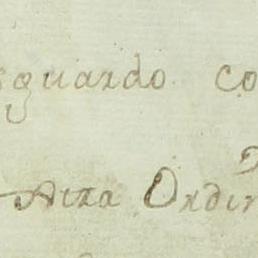 sguardo co
Atra Ordin